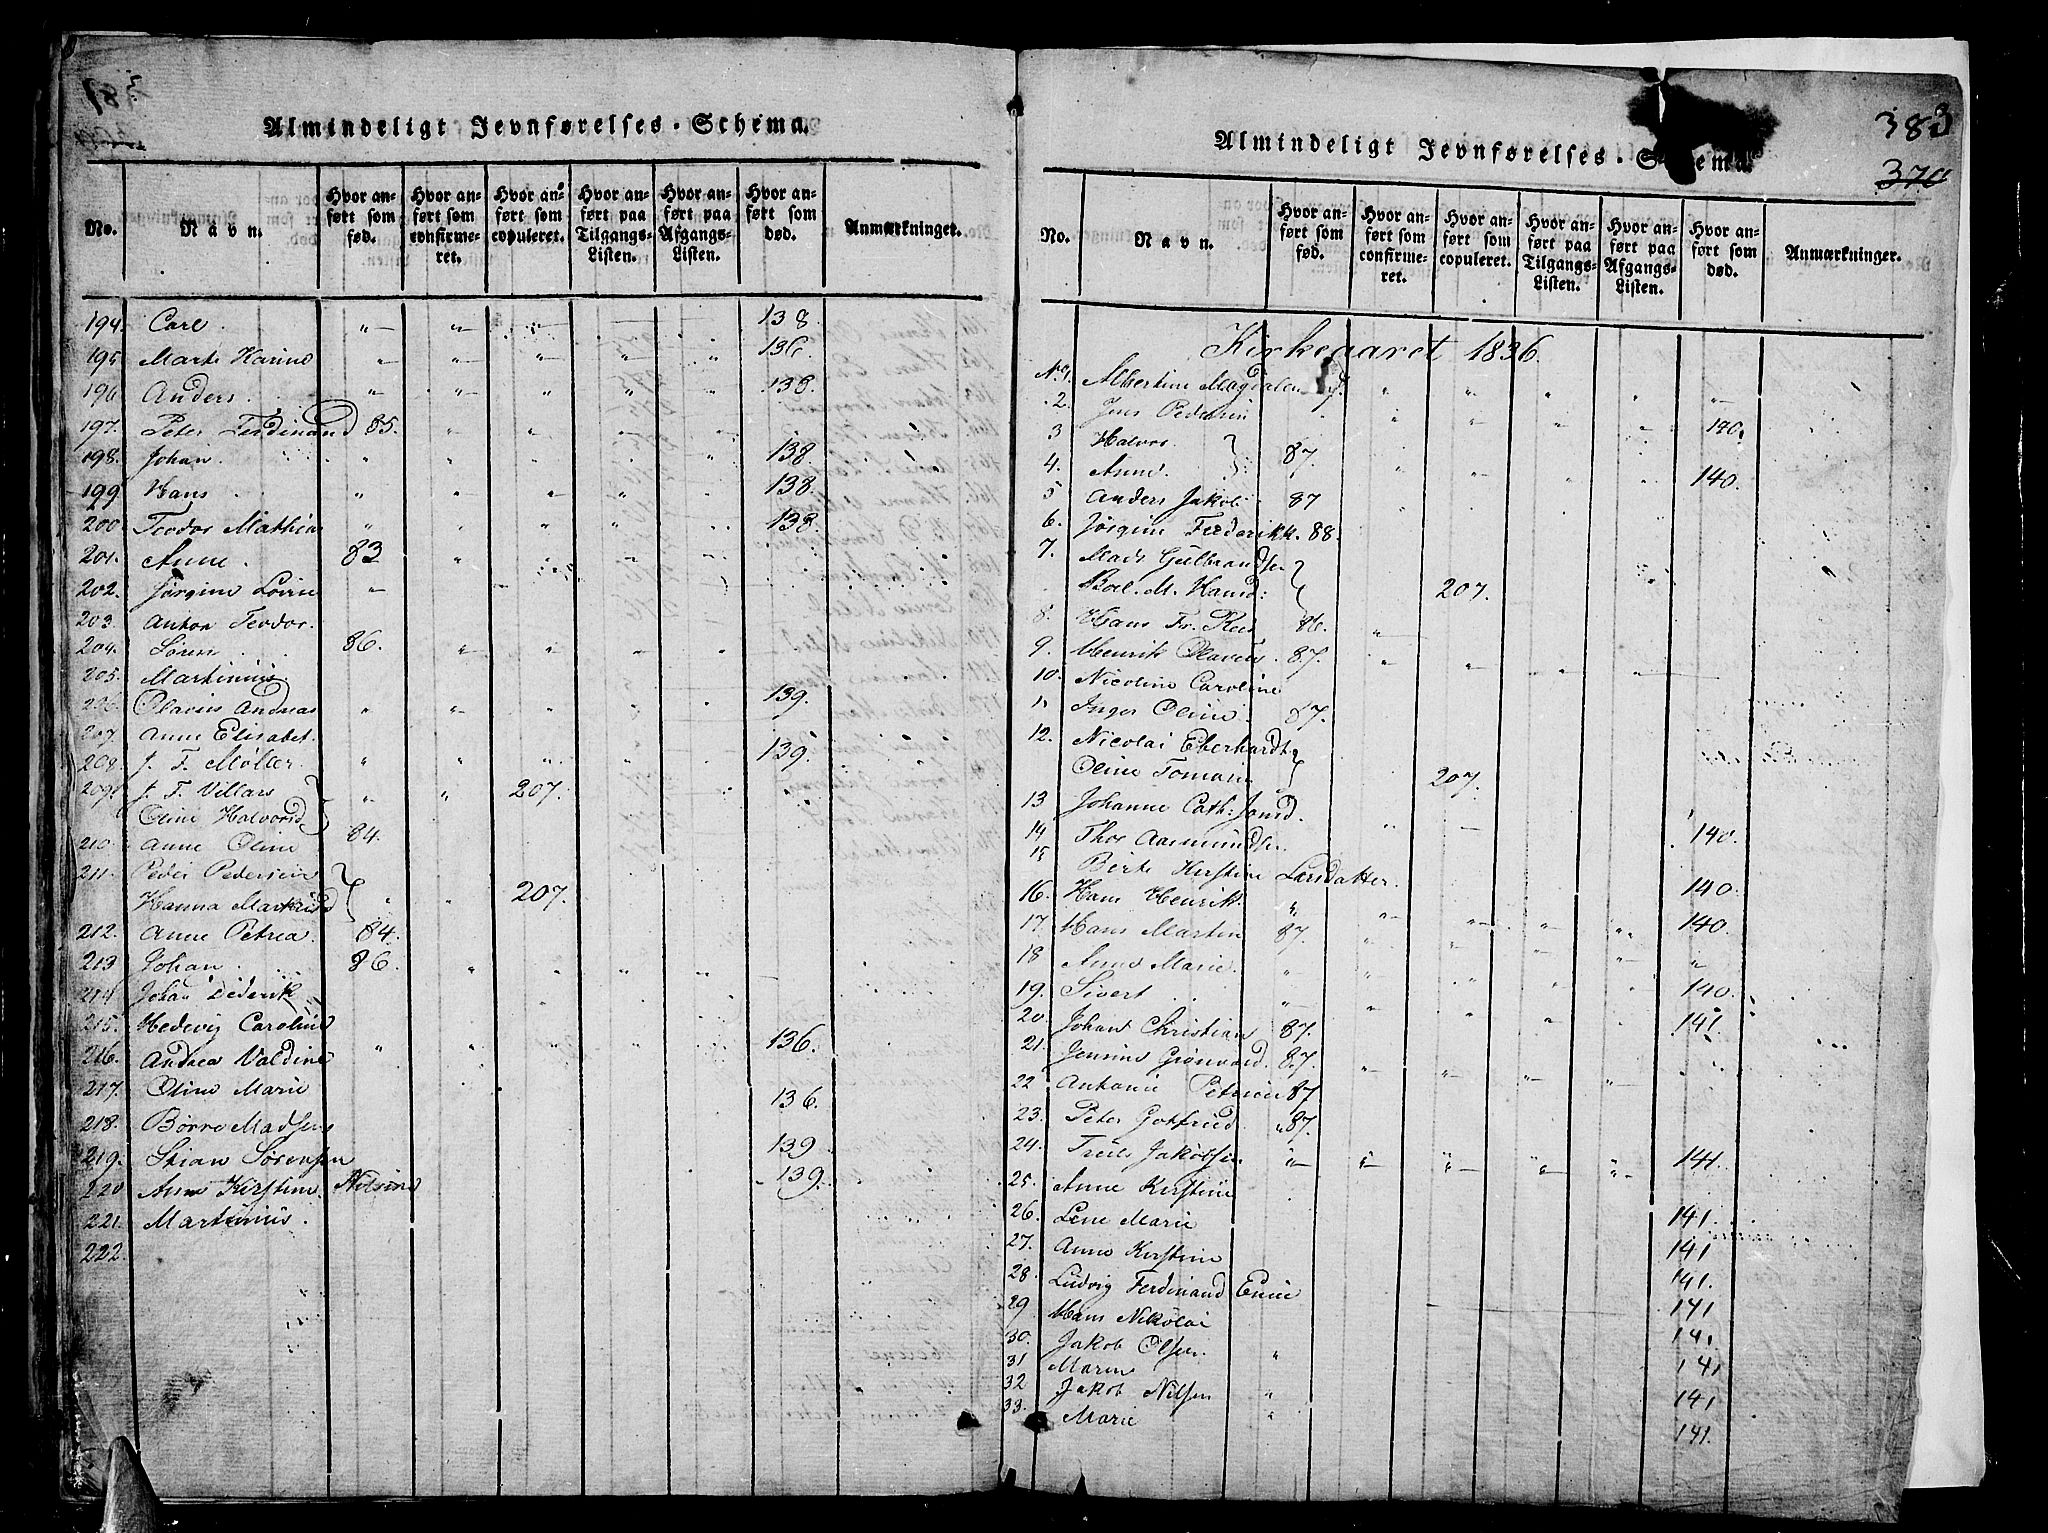 Almindeligt Jevnførelses-Schema.
No.
Navn.
Hvor anført som fød.
Hvor anført som confirmeret.
Hvor anført som copuleret.
Hvor anført paa Tilgangs-Listen.
Hvor anført paa Afgangs-Listen.
Hvor anført som død.
Anmærkninger.
194. Carl 138
195 Marte Karine 136
196 Anders 138
197. Peter Ferdinand 85.
198. Johan. 138
199 Hans 138
200 Teodor Mathias 138.
201. Anne. 83
202. Jørgine Lovise
203. Anton Teodor.
204. Søren 86.
205. Martinius.
206. Olavus Andreas 139.
207. Anne Elisabet.
208. J. F. Møller. 139.
209. J. F. Villars 207.
Oline Halvorsd
210. Anne Oline 84.
211. Peder Pedersen
Hanna Martinsd 207.
212. Anne Petrea. 84.
213 Johan. 86.
214 Johan Diderik
215. Hedevig Caroline
216. Andrea Valdine 136.
217. Oline Marie
218. Børre Madsen 136.
219. Stian Sørensen 139
220 Anne Kirstine Nilsine 139.
221. Martinius.
222.
383
370
Almindeligt Jevnførelses-Schema.
No.
Navn.
Hvor anført som fød.
Hvor anført som confirmeret.
Hvor anført som copuleret.
Hvor anført paa Tilgangs-Listen.
Hvor anført paa Afgangs-Listen.
Hvor anført som død.
Anmærkninger.
Kirkeaaret 1836.
No 1. Albertine Magdalene
2. Jens Pedersen 140.
3 Halvor. 87.
4. Anne 140.
5 Anders Jakob 87
6. Jørgine Frederikke. 88.
7. Mads Gulbrandsen
Boel. M. Hansd: 207.
8. Hans Fr. 86.
9. Henrik Olavus. 87.
10. Nicoline Caroline
11 Inger Oline. 87.
12. Nicolai Eberhardt
Oline Tomasin 207.
13 Johanne Cath: Jonsd.
14 Thor Aasmundsen. 140.
15 Birte Kirstine Larsdatter. 140.
16. Hans Henrik. 140.
17. Hans Martin 87.
18 Anne Marie.
19. Sivert 140.
20. Johan Christian 87. 141.
21. Jensine 87.
22 Antonie Petrine 87
23. Peter Gotfried. 87.
24. Truls Jakobsen 141.
25. Anne Kirstine
26. Lene Marie 141.
27. Anne Kirstine 141
28. Ludvig Ferdinand 141.
29 Hans Nikolai 141
30. Jakob Olsen. 141
31 Maren 141
32 Jakob Nilsen 141
33. Marie 141.